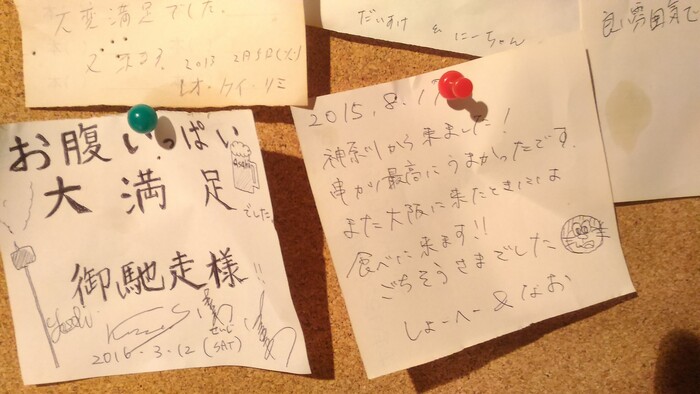 大変満足でした.
又来ます. 2013 2月5日(火)
レオ・ケイ・リミ
だいすけ & にーちゃん
良い雰囲気で
お腹いっぱい
大満足でした
Asahi
御馳走様!!
せいじ
2016・3・12(SAT)
2015.8.17
神奈川から来ました!
串かつ最高にうまかったです.
また大阪に来たときには
食べに来ます!!
ごちそうさまでした
しょーへー & なお